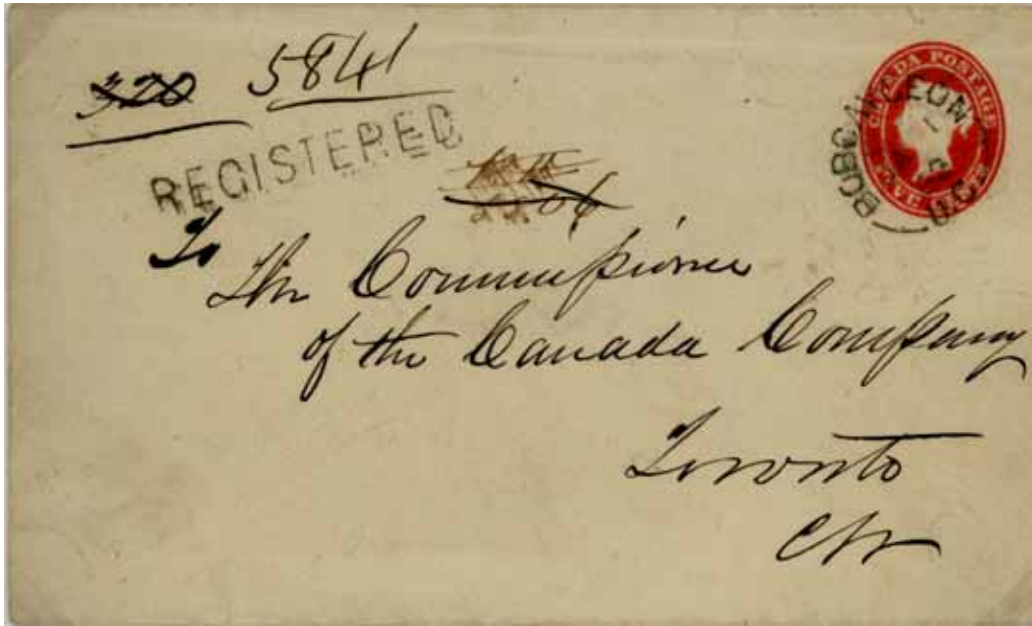 320 5841
REGISTERED
CANADA POSTAGE
BOBCAYGEON
U.C.
To
The Commissioner
of the Canada Company
Toronto
CW